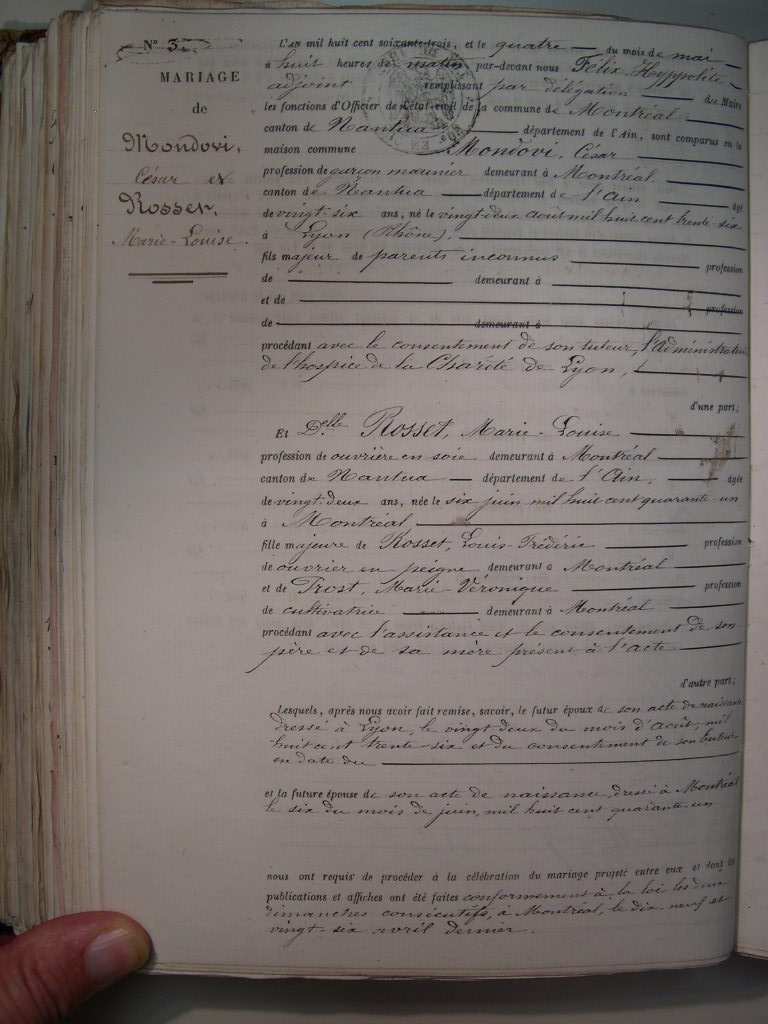 N° 3.
MARIAGE
de
Mondovi,
César et
Rosset,
Marie-Louise.
L'AN mil huit cent soixante-trois, et le quatre du mois de mai
à huit heures du matin par-devant nous Félix Hyppolite
adjoint remplissant par délégation du Maire
les fonctions d'Officier de l'état-civil de la commune de Montréal
canton de Nantua département de l'Ain, sont comparus en la
maison commune Mondovi, César
profession de garçon maunier demeurant à Montréal
canton de Nantua département de l'ain âgé
de vingt-six ans, né le vingt-deux aout mil huit cent trente-six
à Lyon (Rhône).
fils majeur de parents inconnus profession
de demeurant à
et de profession
de demeurant à
procédant avec le consentement de son tuteur, l'administrateur
de l'hospice de la Charité de Lyon,
d'une part;
Et Delle Rosset, Marie-Louise
profession de ouvrière en soie demeurant à Montréal
canton de Nantua département de l'Ain, âgée
de vingt-deux ans, née le six juin mil huit cent quarante-un
à Montréal
fille majeure de Rosset, Louis-Frédéric profession
de ouvrier en peigne demeurant à Montréal
et de Prost, Marie-Véronique profession
de cultivatrice demeurant à Montréal
procédant avec l'assistance et le consentement de son
père et de sa mère présent à l'acte
d'autre part;
Lesquels, après nous avoir fait remise, savoir, le futur époux de son acte de naissance
dressé à Lyon, le vingt deux du mois d'Août, mil
huit cent trente-six et du consentement de son tuteur
en date du
et la future épouse de son acte de naissance, dressé à Montréal
le six du mois de juin, mil huit cent quarante-un
nous ont requis de procéder à la célébration du mariage projeté entre eux et dont les
publications et affiches ont été faites conformement à la loi les
dimanches consécutifs, à Montréal, le dix-neuf et
vingt-six avril dernier.